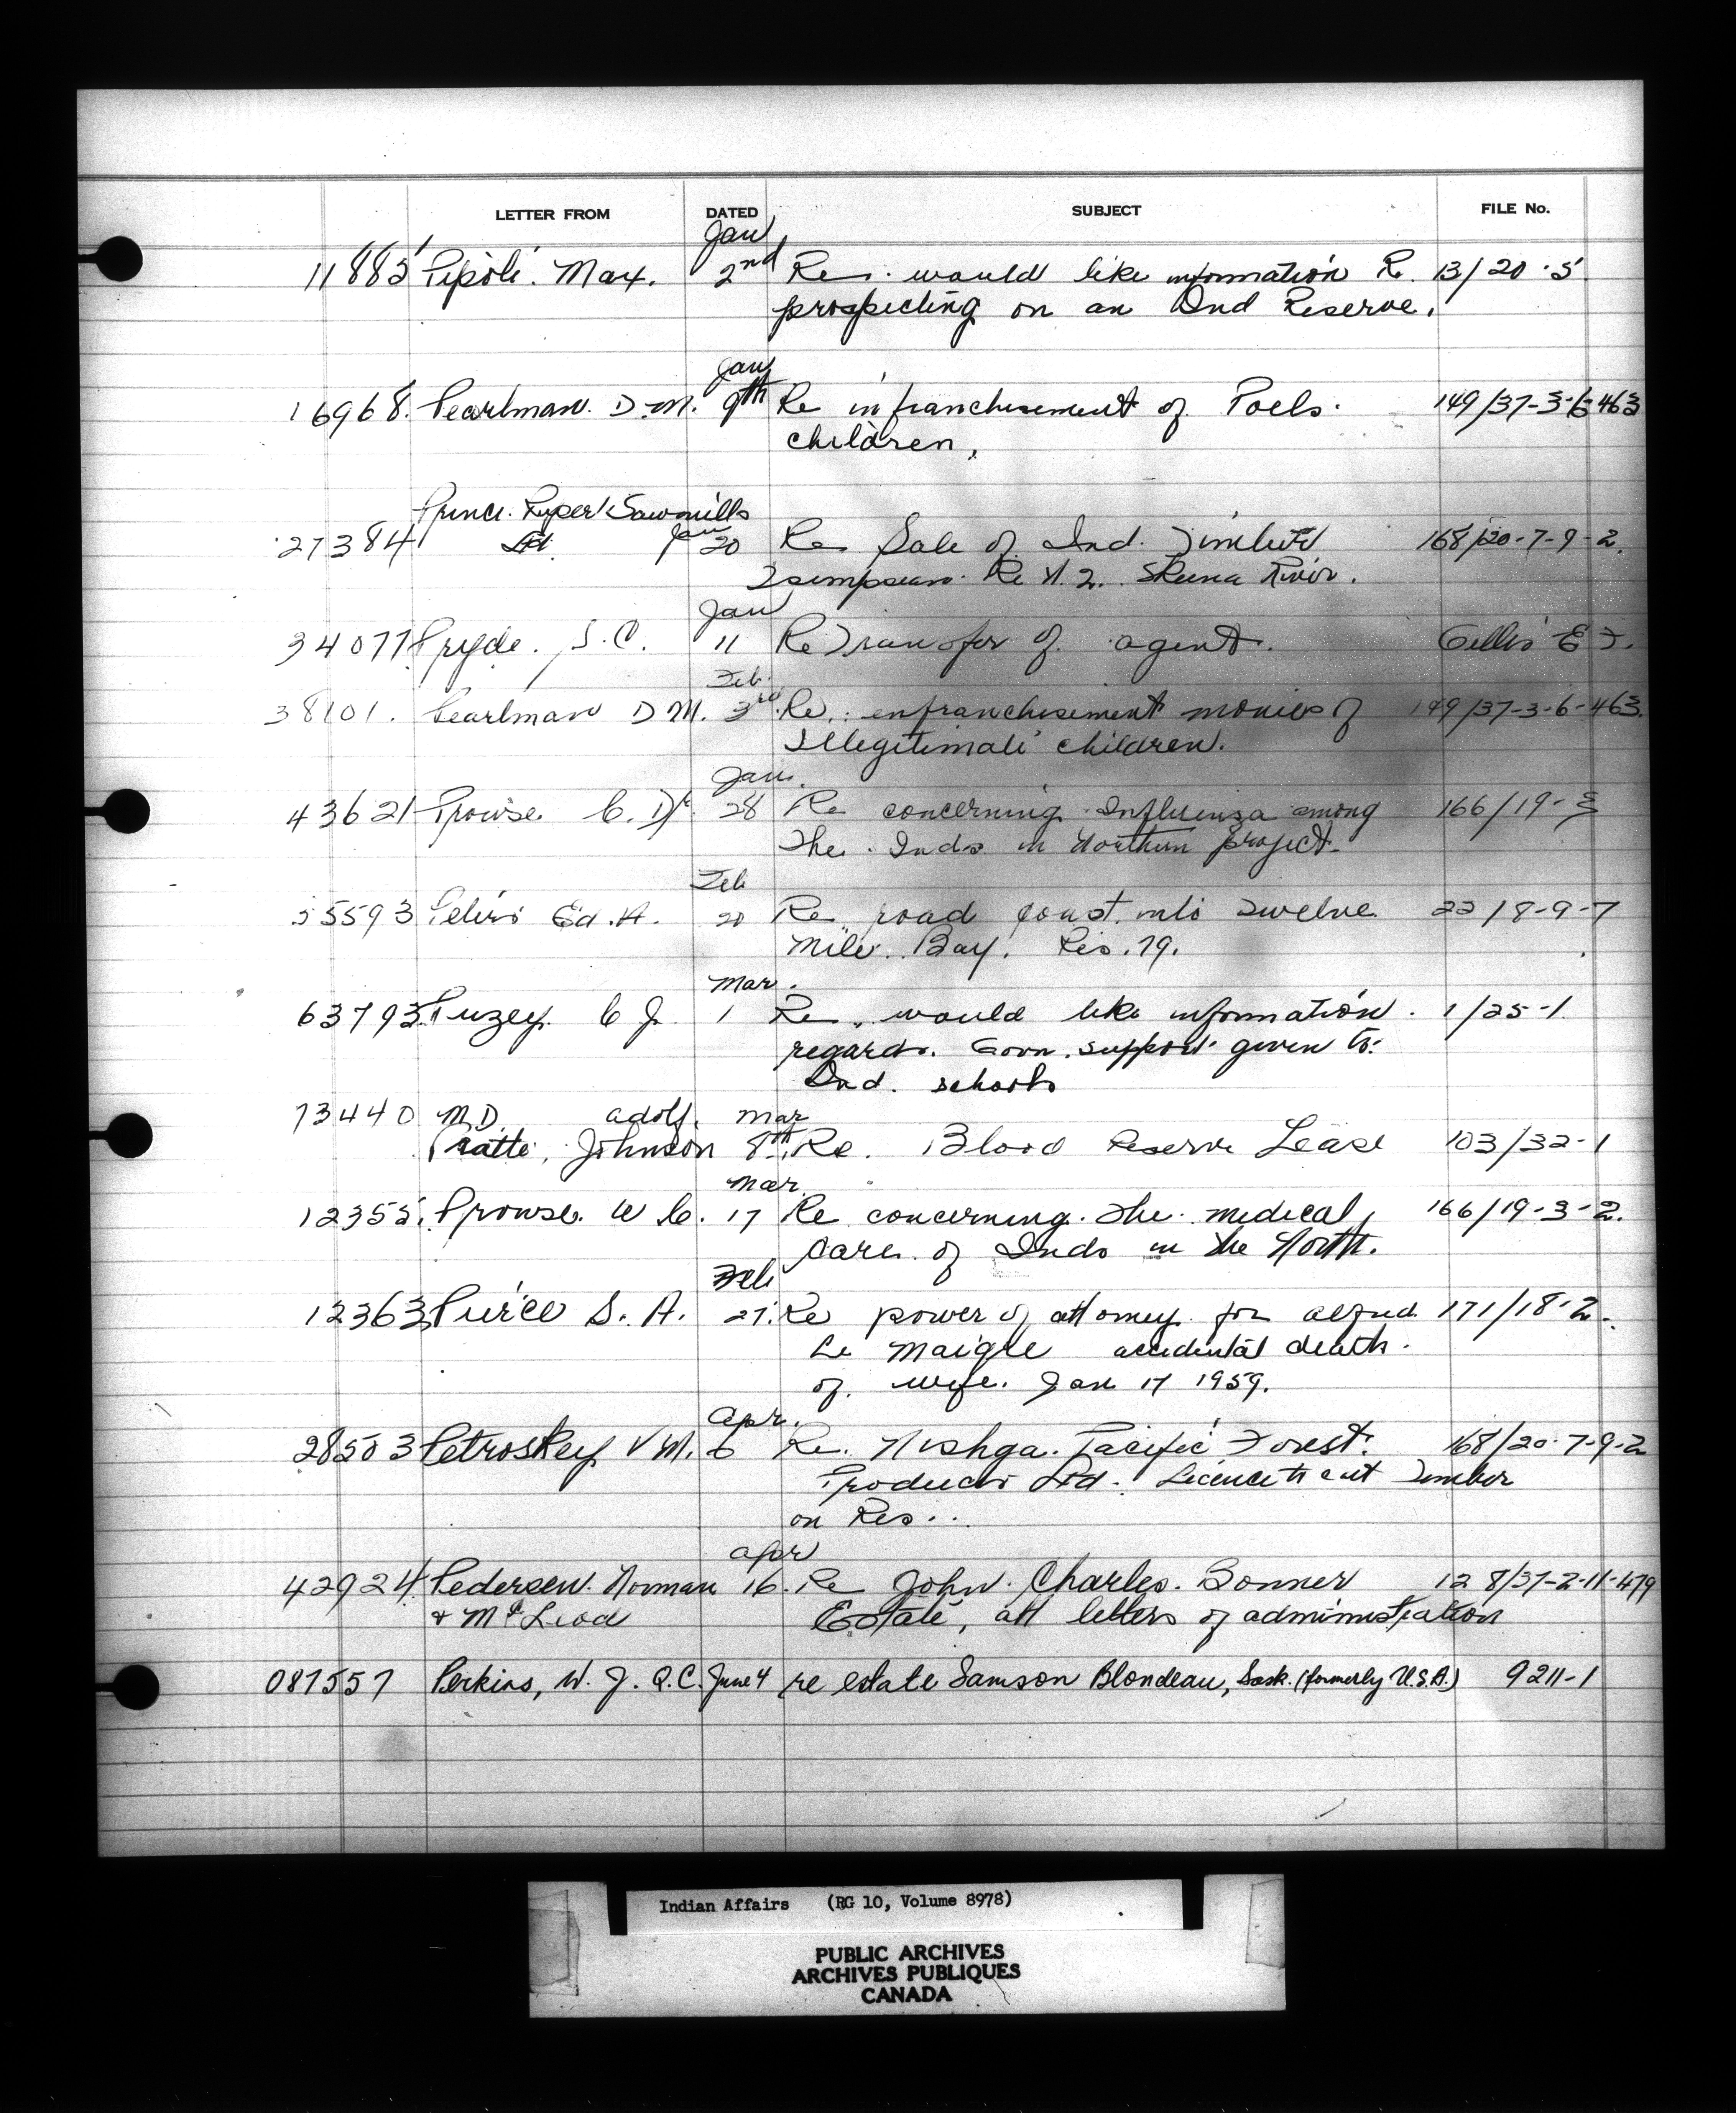 LETTER FROM DATED SUBJECT FILE No.
Jan
11885 Pipoli. Max. 2nd Re. would like information Re. 13/20-5
prospecting on an Ind Reserve.
Jan
16968. Pearlman. D.M. 9th Re infranchisement of Poels. 149/37-3-6-463
children.
Prince Ruper Sawmills
27384 Ltd. Jan 20 Re Sale of Ind. Timber 168/20-7-9-2.
Tsimpsean. Re N. 2. Skeena River.
Jan
34077 Pryde. J.C. 11 Re Transfer of agent. Gellis E F.
Feb.
38101. Pearlman D M. 3rd. Re. enfranchisement monies of 149/37-3-6-463.
Illegitimate children.
Jan.
43621 Prowse C. Dr. 28 Re concerning Influenza among 166/19-3
The Inds in Northern project.
Feb
55593 Peters Ed. A. 20 Re road const. into Twelve 22/8-9-7
Mile Bay. Res. 79.
Mar.
63793. Puzey. C J. 1 Re. would like information. 1/25-1.
regards. Govn. support given to:
Ind. schools
73440 M.D. adolf. Mar
Pratte, Johnson 8th. Re. Blood Reserve Lease 103/32-1
Mar.
12355. Prowse. W C. 17 Re concerning. The medical, 166/19-3-2.
Care of Inds in the North.
Feb
12363 Pierce S. A. 27. Re power of attorney for 171/18-2.
Le Maigre accidental death.
of. wife. Jan 17 1959.
Apr.
28503 Petroskey V M. 6 Re. Nishga. Pacific Forest. 168/20-7-9-2
Products Ltd. Licence to cut Timber
on Res..
Apr
42924 Pedersen. Norman 16. Re John. Charles. Bonner 128/37-2-11-479
& McLeod Estate, att letters of administration
087557 Perkins, W. J. Q.C. June 4 re estate Samson Blondeau, Sask. (formerly U.S.A.) 9211-1
Indian Affairs (RG 10, Volume 8978)
PUBLIC ARCHIVES
ARCHIVES PUBLIQUES
CANADA